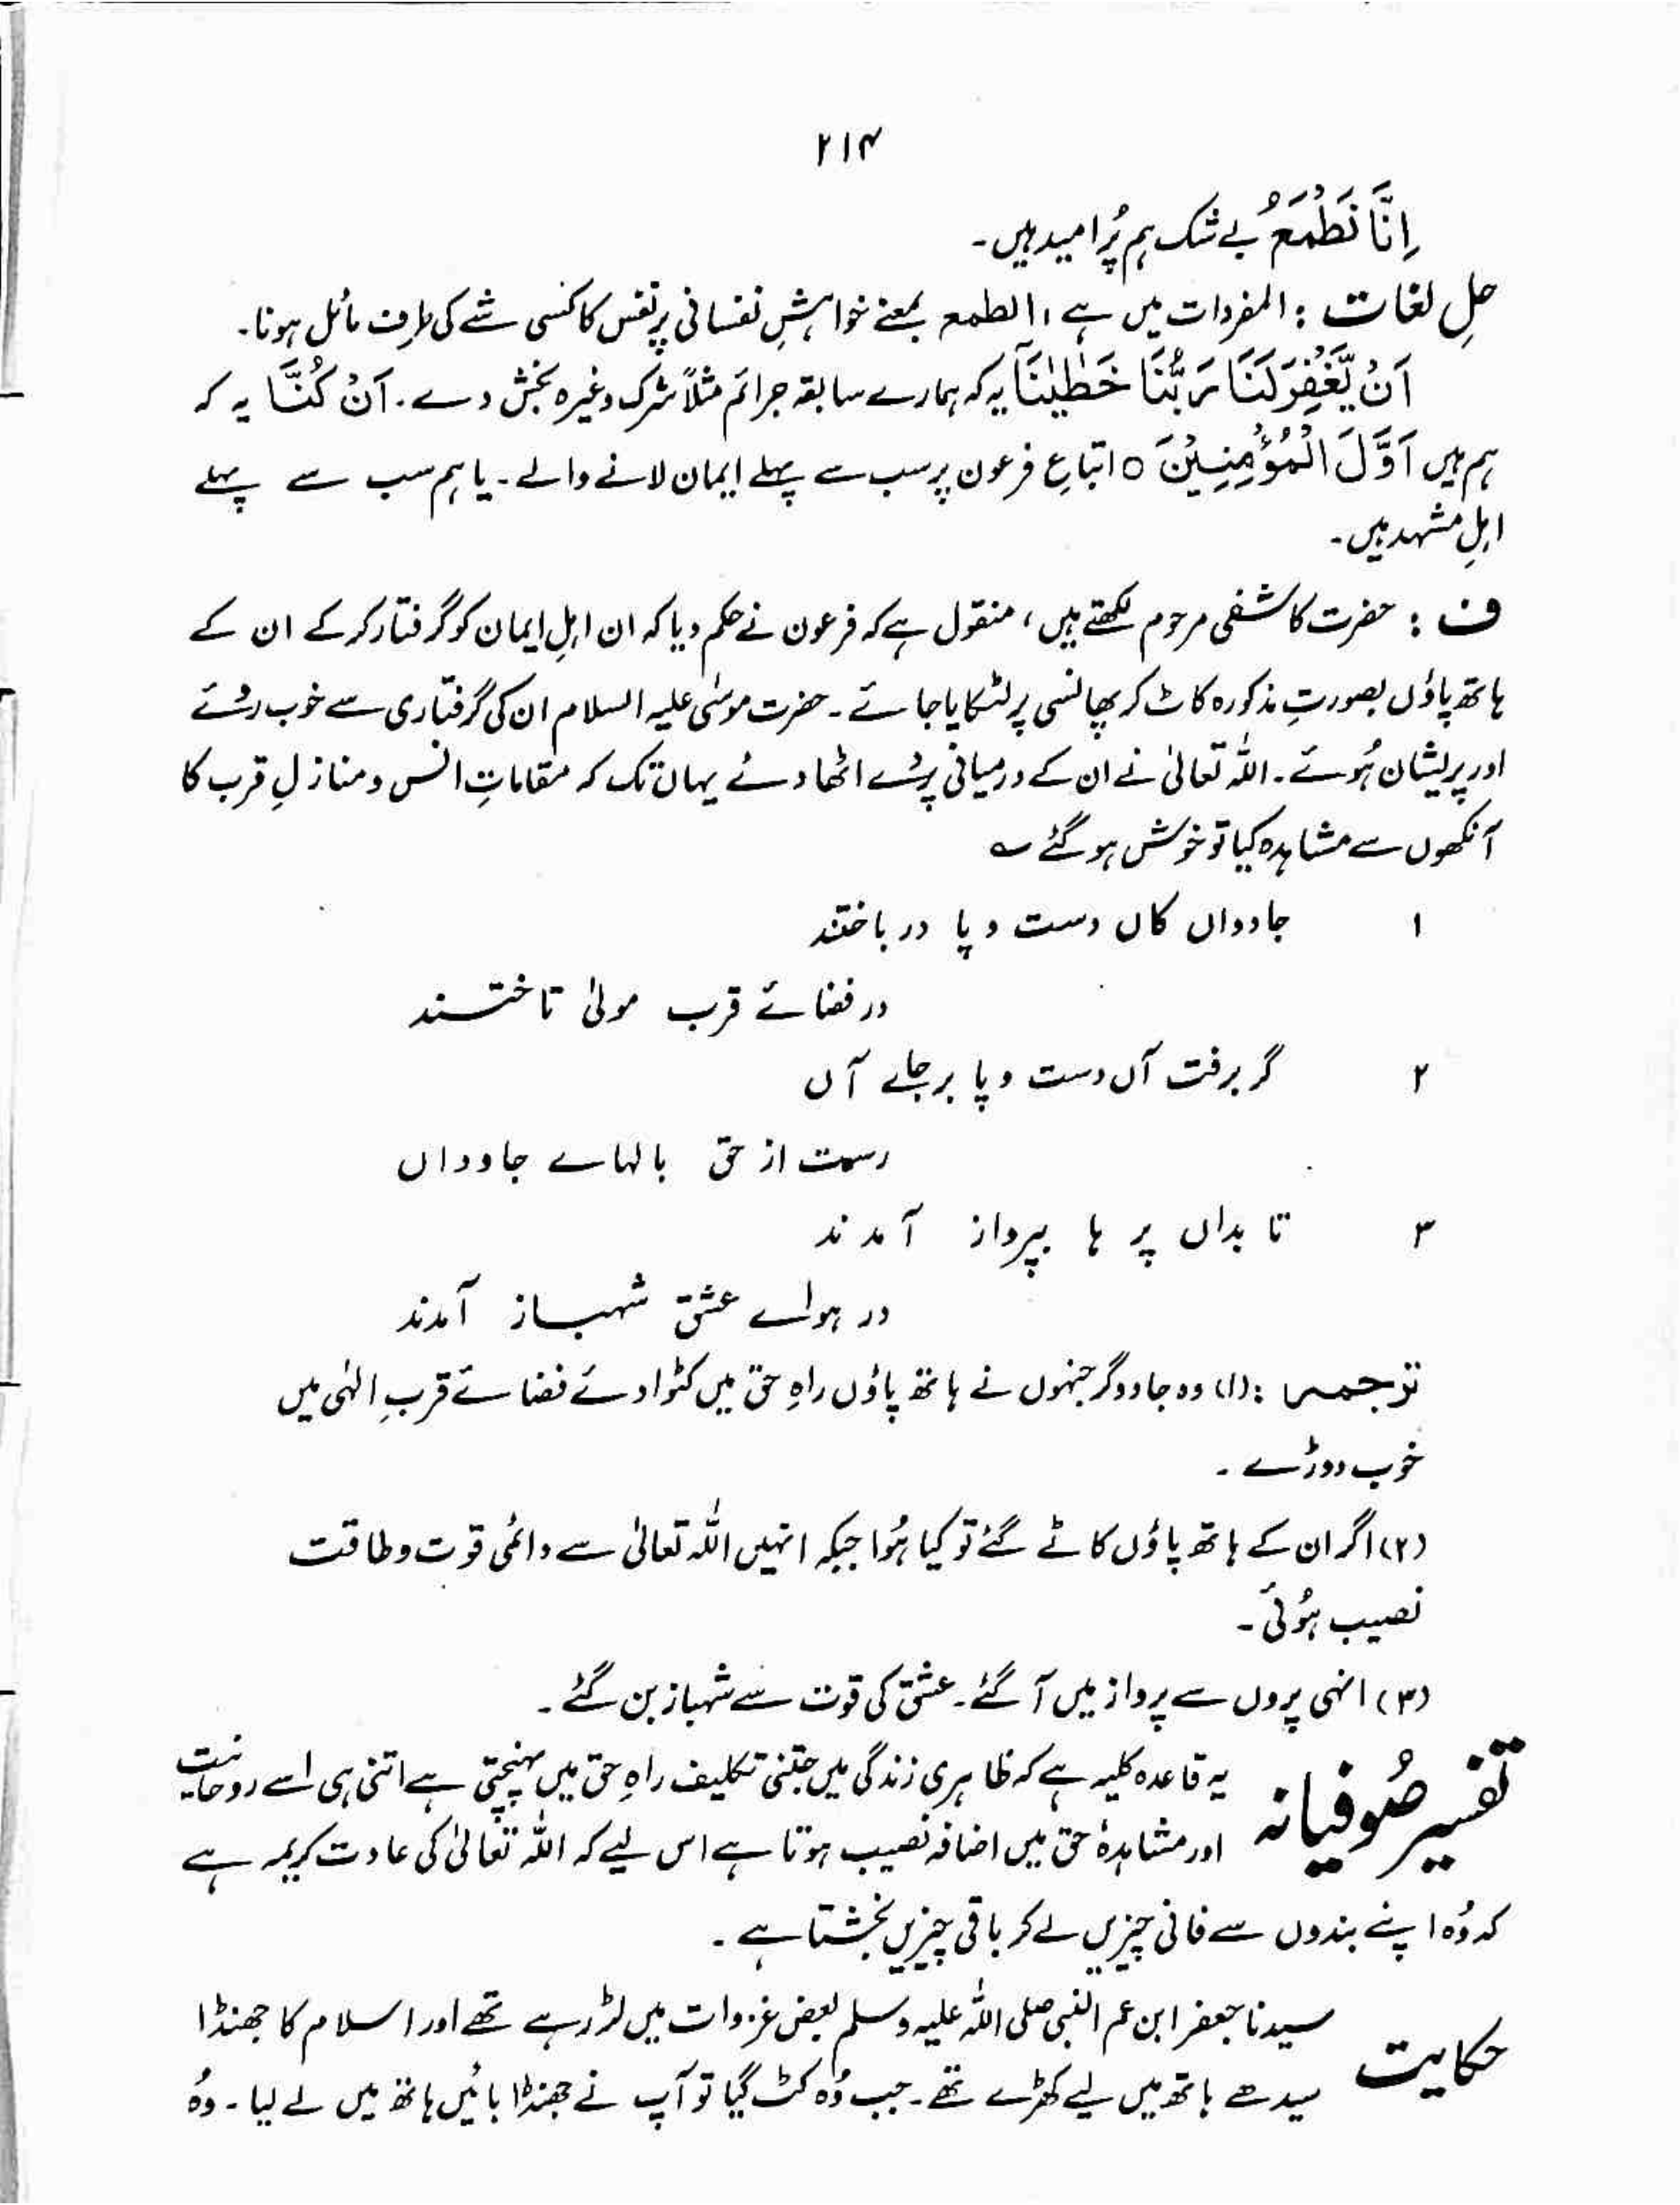 ۲۱۴
اِنَّا نَطْمَعُ بے شک ہم پُرامید ہیں۔
حلِ لغات : المفردات میں ہے ، الطمع بمعنے خواہشِ نفسانی پر نفس کا کسی شے کی طرف مائل ہونا۔
اَنْ يَّغْفِرَ لَنَا رَبُّنَا خَطٰيٰنَآ یہ کہ ہمارے سابقہ جرائم مثلاً شرک وغیرہ بخش دے۔ اَنْ كُنَّا یہ کہ
ہم ہیں اَوَّلَ الْمُؤْمِنِيْنَ ○ اتباعِ فرعون پر سب سے پہلے ایمان لانے والے۔ یا ہم سب سے پہلے
اہلِ مشہد ہیں۔
ف : حضرت کاشفی مرحوم لکھتے ہیں ، منقول ہے کہ فرعون نے حکم دیا کہ ان اہلِ ایمان کو گرفتار کر کے ان کے
ہاتھ پاؤں بصورتِ مذکورہ کاٹ کر پھانسی پر لٹکایا جائے۔ حضرت موسٰی علیہ السلام ان کی گرفتاری سے خوب روئے
اور پریشان ہُوئے۔ اللہ تعالیٰ نے ان کے درمیانی پردے اٹھا دئے یہاں تک کہ مقاماتِ انس و منازلِ قرب کا
آنکھوں سے مشاہدہ کیا تو خوش ہو گئے ؎
۱ جادواں کاں دست و پا در باختند
در فضائے قرب مولیٰ تاختند
۲ گر برفت آں دست و پا بر جاے آں
رست از حق بالہاے جاوداں
۳ تا بداں پر ہا بپرواز آمدند
در ہواے عشق شہباز آمدند
ترجمہ : (۱) وہ جادوگر جنہوں نے ہاتھ پاؤں راہِ حق میں کٹوا دئے فضائے قربِ الٰہی میں
خوب دوڑے ۔
(۲) اگر ان کے ہاتھ پاؤں کاٹے گئے تو کیا ہُوا جبکہ انہیں اللہ تعالیٰ سے دائمی قوت و طاقت
نصیب ہُوئی ۔
(۳) انہی پروں سے پرواز میں آ گئے ۔ عشق کی قوت سے شہباز بن گئے ۔
تفسیر صُوفیانہ یہ قاعدہ کلیہ ہے کہ ظاہری زندگی میں جتنی تکلیف راہِ حق میں پہنچتی ہے اتنی ہی اسے روحانیت
اور مشاہدۂ حق میں اضافہ نصیب ہوتا ہے اس لیے کہ اللہ تعالیٰ کی عادت کریمہ ہے
کہ وُہ اپنے بندوں سے فانی چیزیں لے کر باقی چیزیں بخشتا ہے ۔
حکایت سیدنا جعفر ابن عم النبی صلی اللہ علیہ وسلم بعض غزوات میں لڑ رہے تھے اور اسلام کا جھنڈا
سیدھے ہاتھ میں لیے کھڑے تھے۔ جب وُہ کٹ گیا تو آپ نے جھنڈا بائیں ہاتھ میں لے لیا۔ وُہ